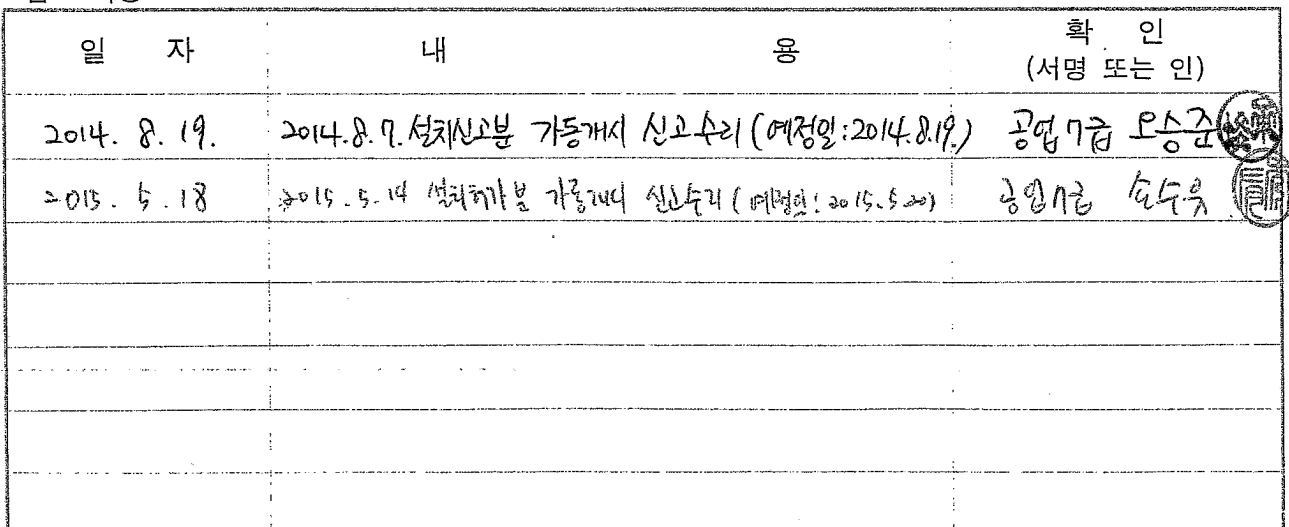 일 자 내 용 확 인
(서명 또는 인)
2014. 8. 19. 2014.8.7. 설치신고분 가동개시 신고수리 (예정일:2014.8.19.) 공업7급 오승준
2015. 5. 18 2015.5.14 설치허가분 가동개시 신고수리 (예정일: 2015.5.20) 공업7급 손수